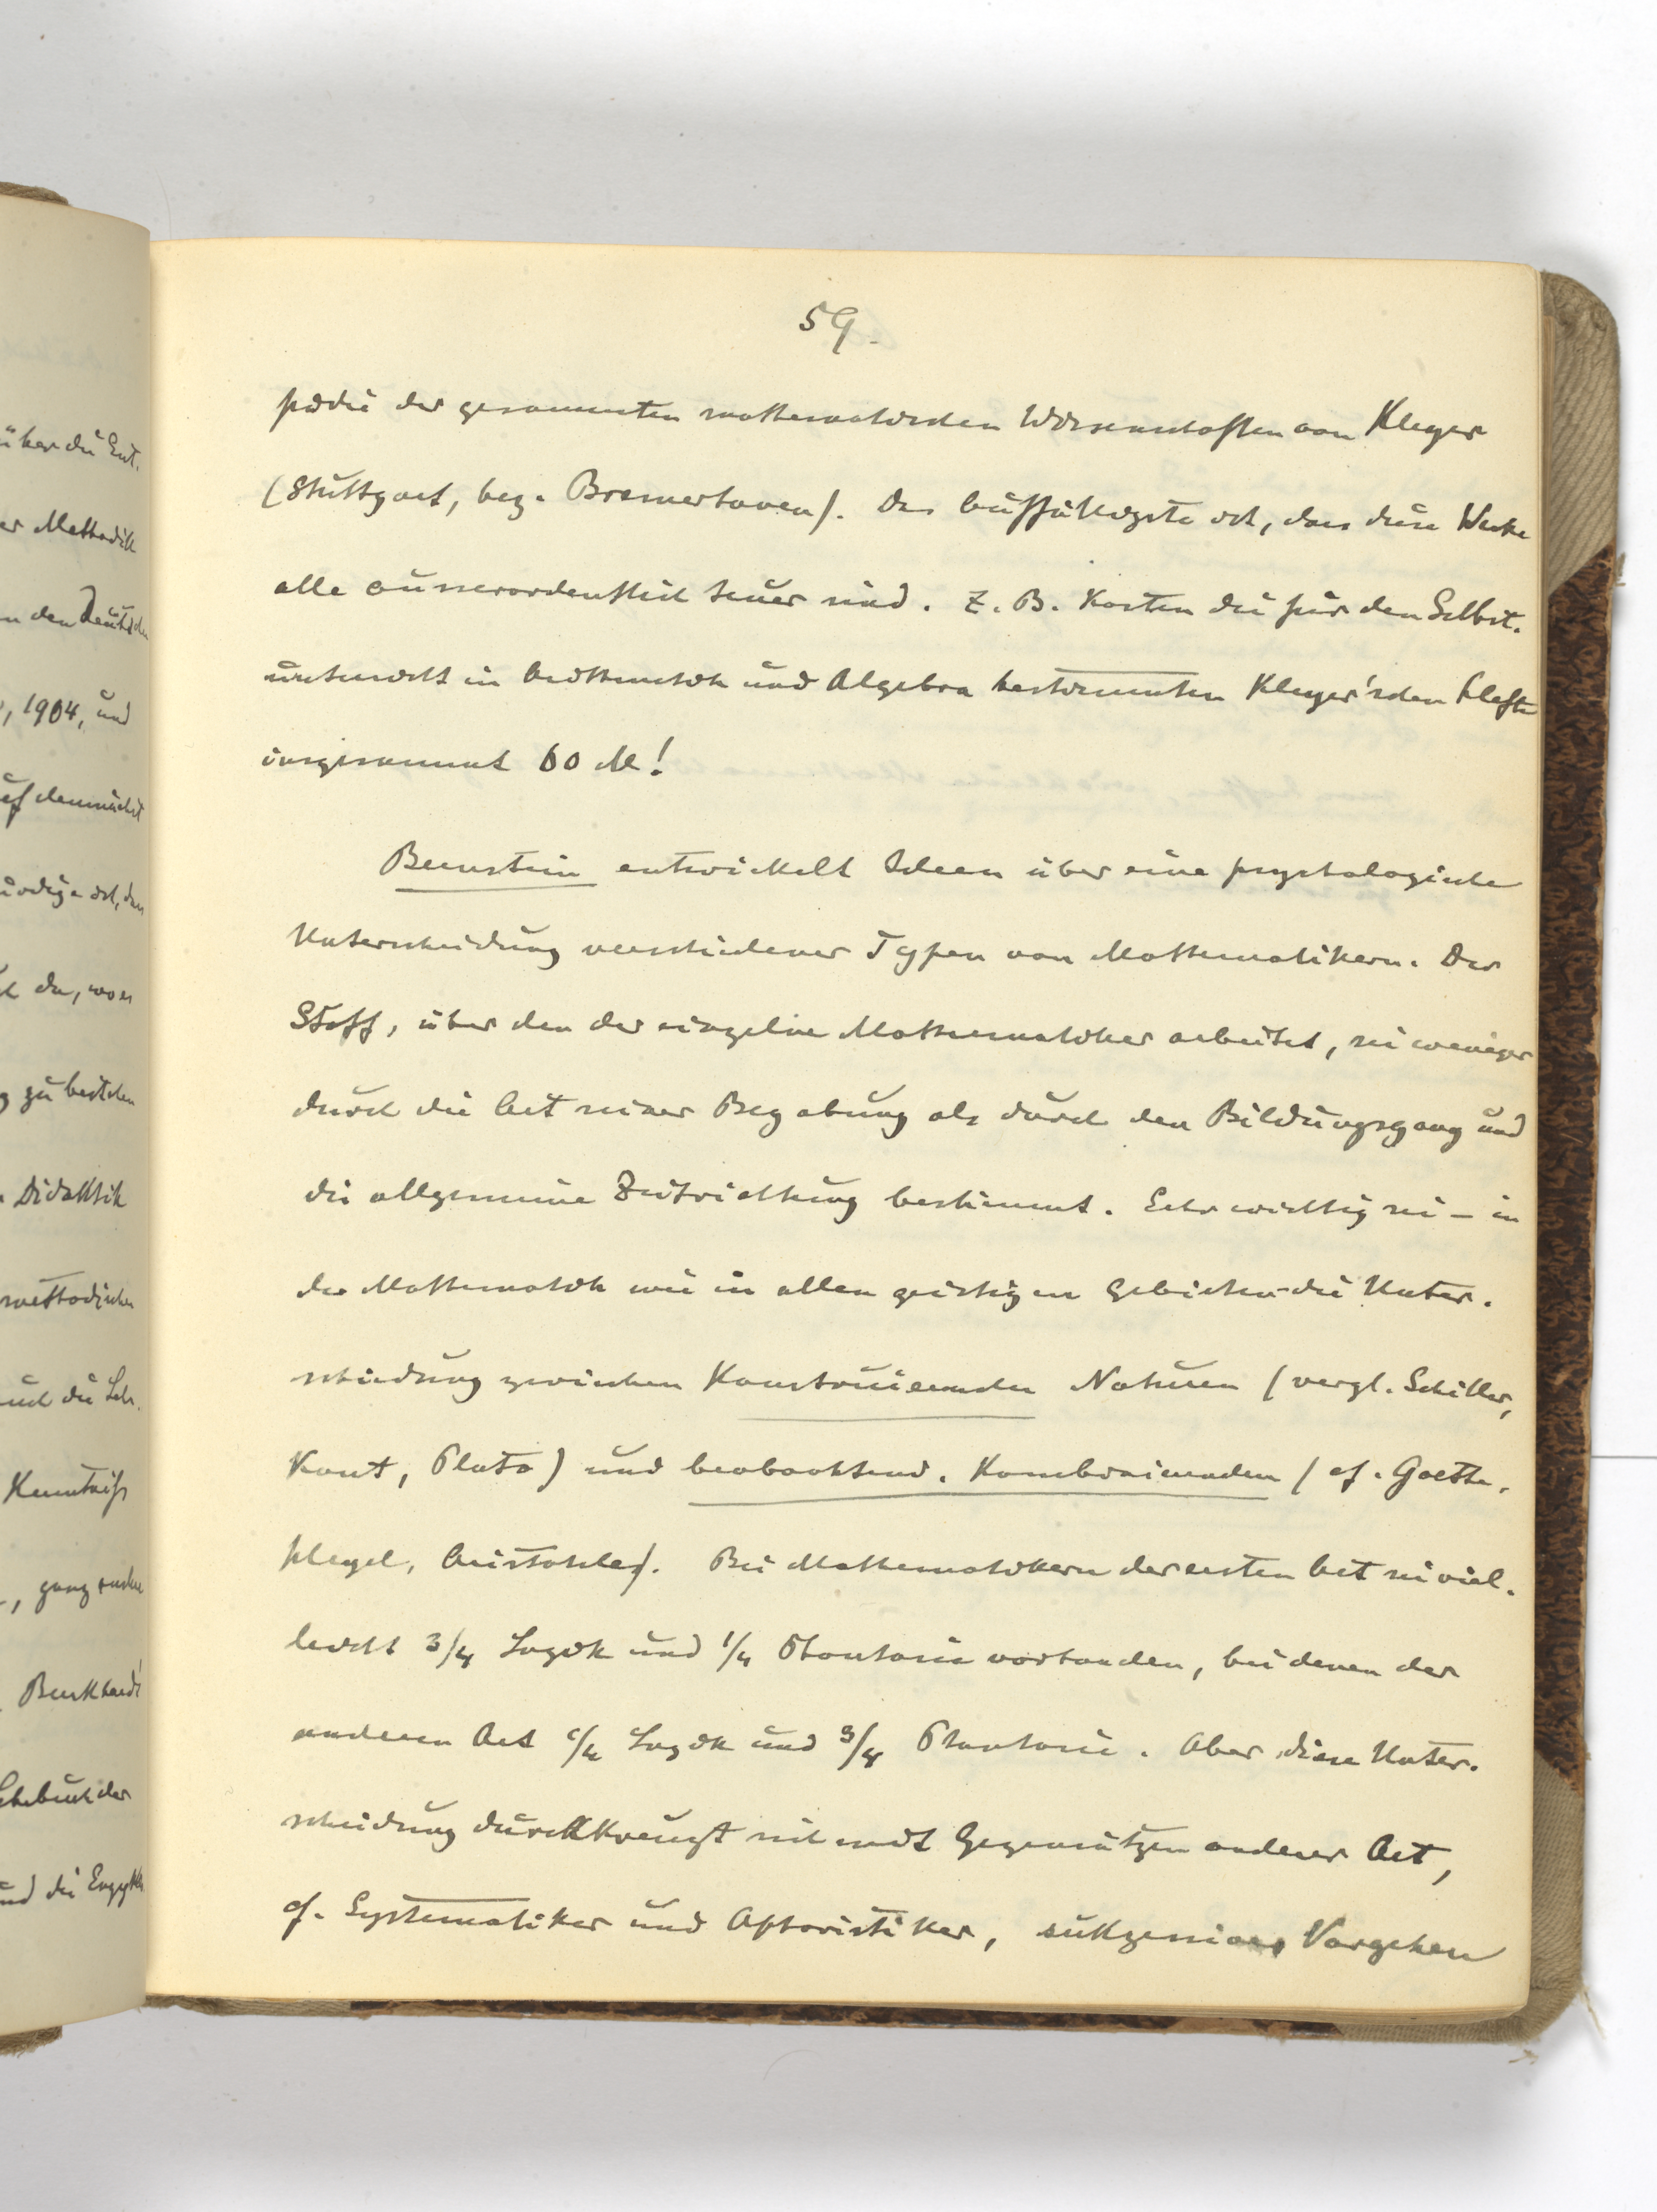 59.
pädie der gesammten mathematischen Wissenschaften von Kleyer
(Stuttgart, bez. Bremerhaven). Das Auffälligste ist, dass diese Werke
alle ausserordentlich teuer sind. Z. B. kosten die für den Selbst-
unterricht in Arithmetik und Algebra bestimmten Kleyer'schen Hefte
insgesammt 60 M!
Bernstein entwickelt Ideen über eine psychologische
Unterscheidung verschiedener Typen von Mathematikern. Der
Stoff, über den der einzelne Mathematiker arbeitet, sei weniger
durch die Art seiner Begabung als durch den Bildungsgang und
die allgemeine Zeitrichtung bestimmt. Sehr wichtig sei – in
der Mathematik wie in allen geistigen Gebieten – die Unter-
scheidung zwischen Konstruierenden Naturen (vergl. Schiller,
Kant, Plato) und beobachtend-Kombinierenden (cf. Goethe,
Hegel, Aristoteles). Bei Mathematikern der ersten Art sei viel-
leicht 3/4 Logik und 1/4 Phantasie vorhanden, bei denen der
anderen Art 1/4 Logik und 3/4 Phantasie. Aber diese Unter-
scheidung durchkreuzt sich mit Gegensätzen anderer Art,
cf. Systematiker und Aphoristiker, sukzessives Vorgehen
über die Ent-
Methodik
den Deutschen
, 1904, und
demnächst
da, wo es
zu bestehen
Didaktik
methodischen
und die Leh-
Kenntniss
, ganz
Burkhardt
und die Enzykl